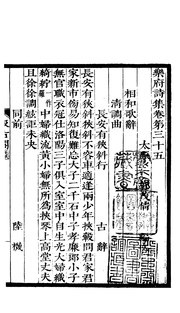 樂府詩集卷第三十五
太
相和歌辭
清調曲
長安有狹斜行 古辭
長安有狹斜狹斜不容車適逢兩少年挾轂問君家君
家新市傍易知復難忘大子二千石中子孝廉郎小子
無官職衣冠仕洛陽三子俱入室室中自生光大婦織
綺紵中婦織流黃小婦無所為挾琴上高堂丈夫
且徐徐調絃詎未央
同前 陸機